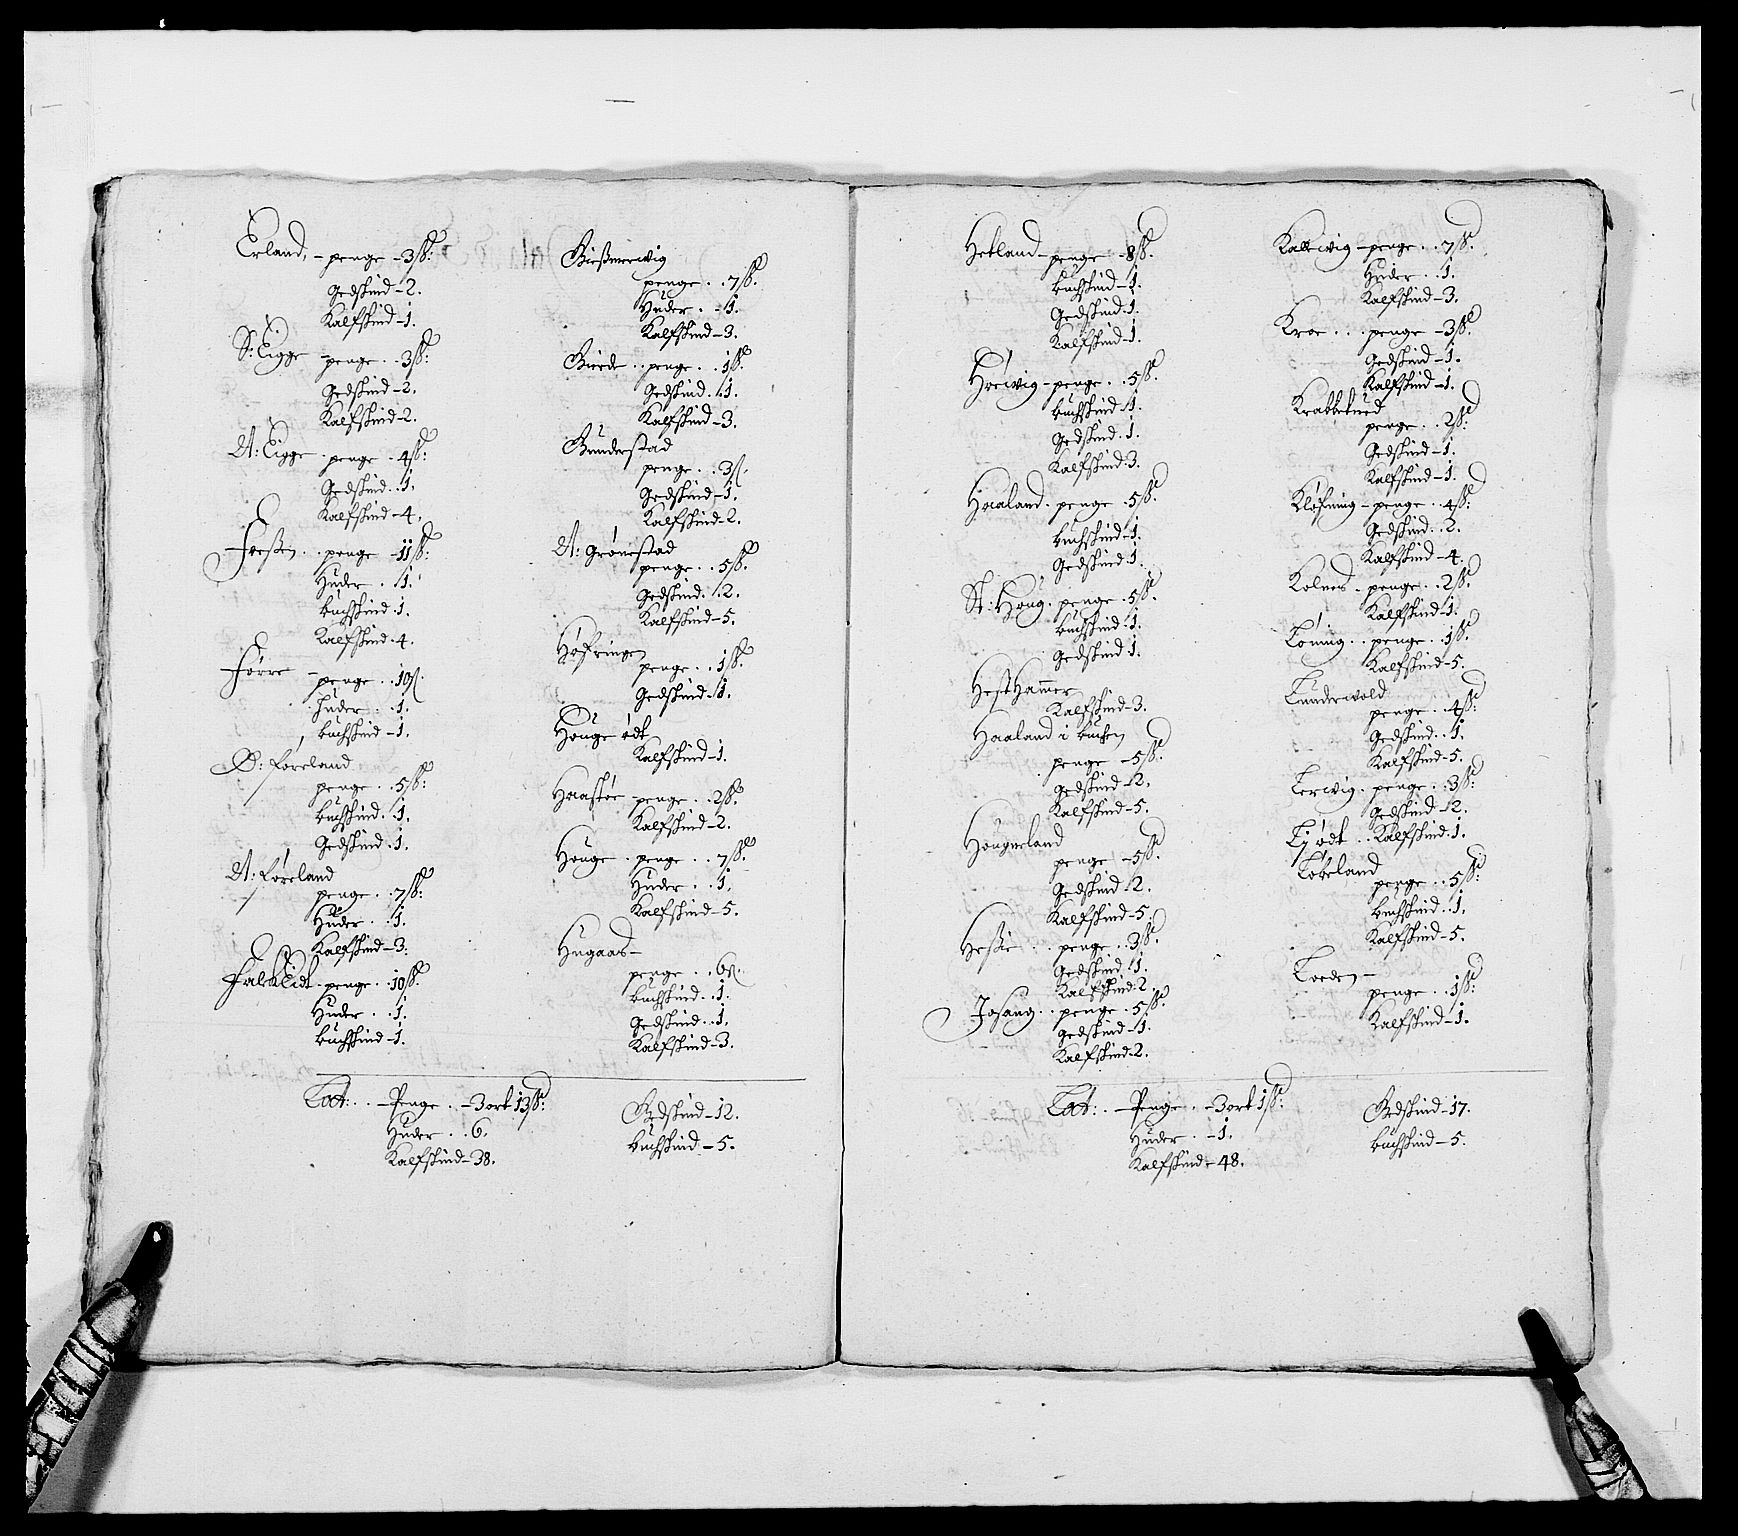 Erland, - penge - 3 ß:
Gedskind - 2.
Kalfskind - 1.
S: Eigge - penge . . 3 ß:
Gedskind - 2.
Kalfskind - 2.
N: Eigge - penge . 4 ß:
Gedskind . . 1.
Kalfskind - 4.
penge - 11 ß:
Huder . . 1.
Buchskind . 1.
Kalfskind . 4.
Førre - penge . . 10 ß.
Huder . . 1.
Buchskind - 1.
Ø: Føreland
penge . . 5 ß:
Buchskind . 1.
Gedskind . 1.
N: Føreland
penge . . 7 ß:
Huder . . 1.
Kalfskind - 3.
Falcheidt - penge . . 10 ß:
Huder . . 1.
Buchskind - 1.
penge . . 7 ß.
Huder . . 1.
Kalfskind - 3.
Gierde . . penge . . 1 ß.
Gedskind . 1.
Kalfskind - 3.
Gunderstad
penge . . 3 ß.
Gedskind - 1.
Kalfskind - 2.
N: Grønestad
penge . . 5 ß.
Gedskind . . 2.
Kalfskind - 5.
Høfringen
penge . . 1 ß.
Gedskind . 1.
Houge ødt
Kalfskind - 1.
penge . . 2 ß.
Kalfskind - 2.
Houge . penge . . 7 ß.
Huder . . 1.
Kalfskind - 5.
Hugaas -
penge . . 6 ß.
Buchskind . . 1.
Gedskind . . 1.
Kalfskind - 3.
Lat: . . - Penge . . - 3 ort 13 ß:
Huder . . 6.
Kalfskind - 38.
Gedskind - 12.
Buchskind - 5.
Hetland - penge - 8 ß.
Buchskind - 1.
Gedskind 1.
Kalfskind - 1.
Hoevig - penge . . 5 ß.
Buchskind . 1.
Gedskind . 1.
Kalfskind . 3.
Haaland . penge . 5 ß.
Buchskind . 1.
Gedskind . 1.
St: Houg . penge . 5 ß.
Buchskind . 1.
Gedskind 1.
Hest Hammer
Kalfskind - 3.
Haaland i Buchen
penge - 5 ß.
Gedskind - 2.
Kalfskind - 5.
Hougneland
penge - 5 ß.
Gedskind . 2.
Kalfskind - 5.
penge . . 3 ß.
Gedskind . 1.
Kalfskind . 2.
Josang . . penge . 5 ß.
Gedskind - 1.
Kalfskind - 2.
Kattwig - penge . . 7 ß.
Huder . . 1.
Kalfskind - 3.
Kroe . . . penge - 3 ß.
Gedskind - 1.
Kalfskind - 1.
penge . . 2 ß:
Gedskind - 1.
Kalfskind - 1.
Kløfning - penge . . 4 ß:
Gedskind . . 2.
Kalfskind - 4.
Kolnes . penge . . 2 ß:
Kalfskind - 1.
Løning . . penge . . 1 ß.
Kalfskind - 5.
Lundewold
penge . . 4 ß:
Gedskind . . 1.
Kalfskind - 5.
Lerwig . penge . . 3 ß:
Gedskind - 2.
Lj ødt . . Kalfskind . 1.
Løkeland
penge . . 5 ß:
Buchskind . . 1.
Kalfskind - 5.
Loeden -
penge . . 1 ß:
Kalfskind - 1.
Lat: . . - Penge . . - 3 ort 1 ß:
Huder . - 1.
Kalfskind - 48.
Gedskind - 17.
Buchskind - 5.